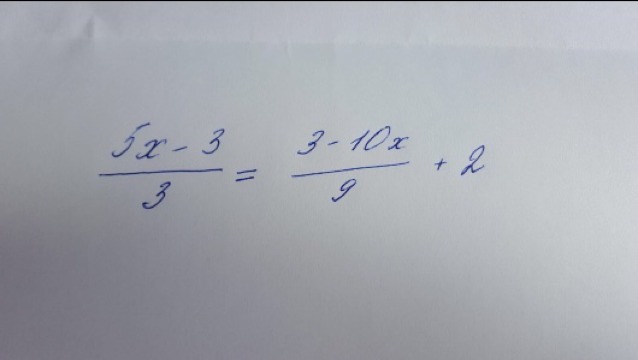 (5x - 3)/3 = (3 - 10x)/9 + 2